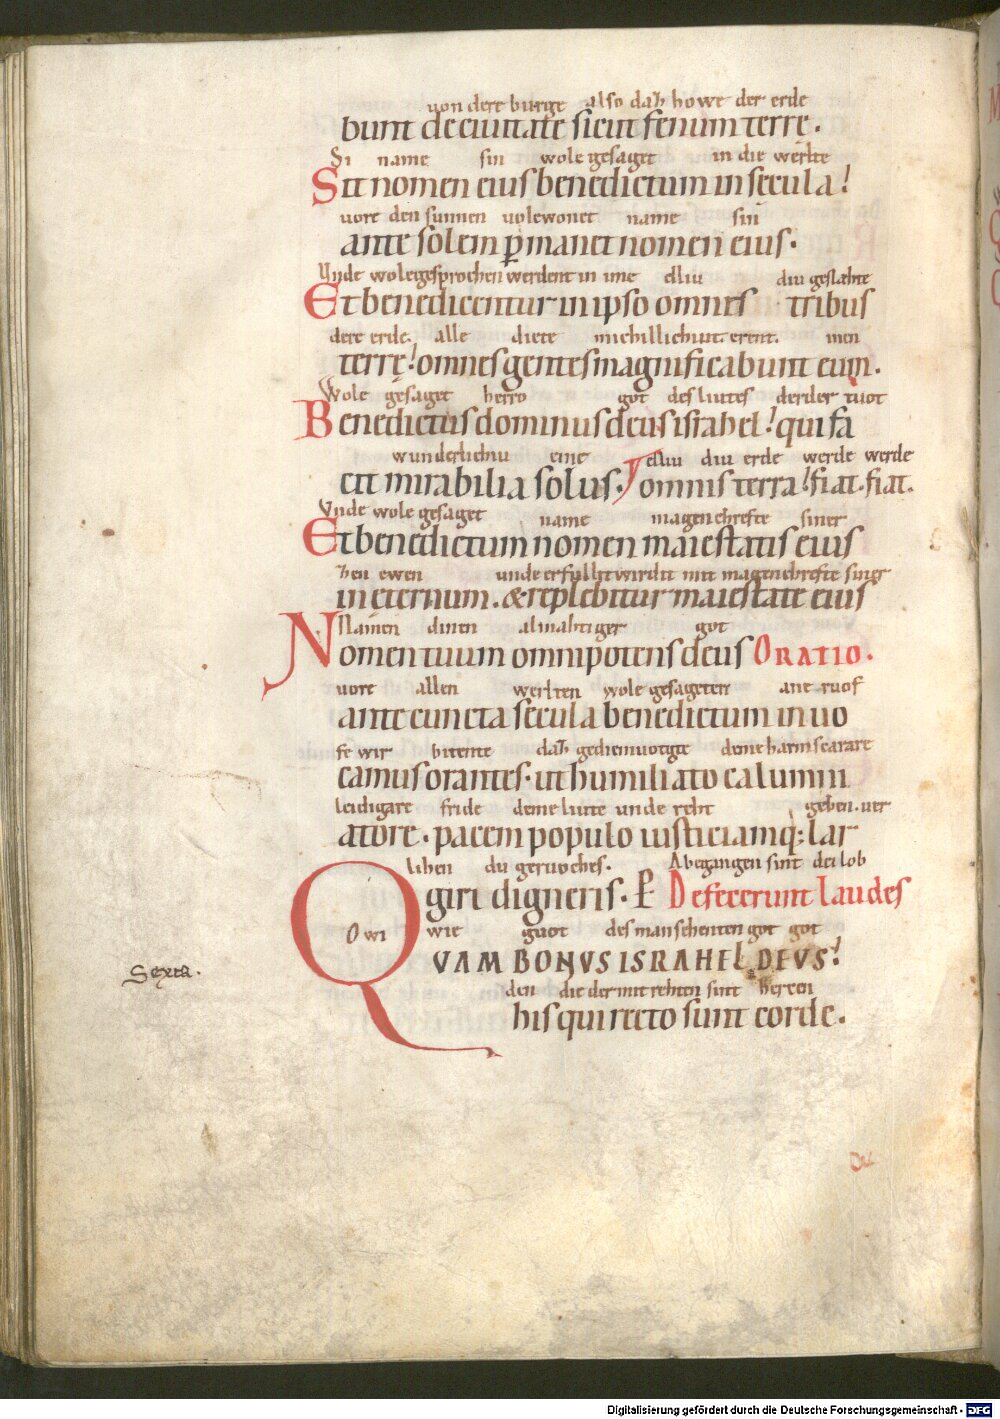 von dere burge also daz howe der erde
bunt de ciuitate sicut fenum terrę.
Si name sin wole gesaget in die werlte
Sit nomen eius benedictum in secula!
uore den sunnen uolewonet name sin
ante solem p̱manet nomen eius.
Unde wolegesprochen werdent in ime elliu diu geslahte
Et benedicentur in ipso omnes tribus
dere erde. alle diete michillichint erent. inen
terrę! omnes gentes magnificabunt eum.
Wole gesaget herro got des liutes der der tuot
Benedictus dominus deus israhel! qui fa
wunderlichiu eine elliu diu erde werde werde
cit mirabilia solus. omnis terra! fiat. fiat.
Unde wole gesaget name magenchrefte siner
Et benedictum nomen maiestatis eius
zen ewen unde erfullit wirdit mit magenchrefte siner
in ęternum. & replebitur maiestate eius
Namen dinen almahtiger got
Nomen tuum omnipotens deus ORATIO.
uore allen werlten wole gesageten ane ruof
ante cuncta secula benedictum inuo
fe wir bitente daz gediemuotigte deme harmscarare
camus orantes. ut humiliato calumni
leidigare fride deme liute unde reht geben. uer
atore. pacem populo iusticiamq; lar
lihen du geruoches. Abegangen sint dei lob
giri digneris. P Defecerunt laudes
O wi wie guot des manschenten got got
QUAM BONUS ISRAHEL DEUS!
Sexta.
den die der mit rehten sint herzen
his qui recto sunt corde.
Digitalisierung gefördert durch die Deutsche Forschungsgemeinschaft - DFG